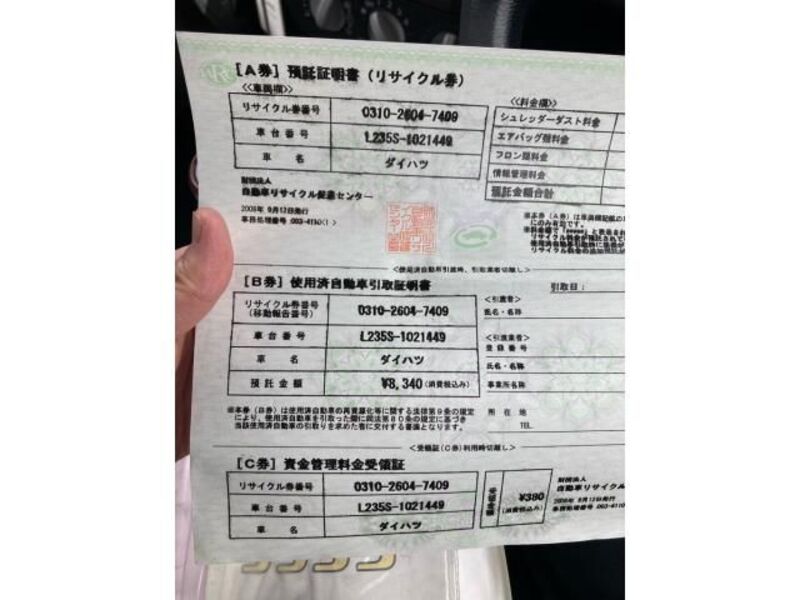 [A券] 預託証明書 (リサイクル券)
≪車両欄≫
リサイクル券番号 0310-2604-7409
車台番号 L235S-1021449
車名 ダイハツ
≪料金欄≫
シュレッダーダスト料金
エアバッグ類料金
フロン類料金
情報管理料金
預託金額合計
財団法人
自動車リサイクル促進センター
2008年 9月12日発行
<使用済自動車引渡時、引取業者切離し>
[B券] 使用済自動車引取証明書
引取日:
リサイクル券番号
(移動報告番号) 0310-2604-7409
車台番号 L235S-1021449
車名 ダイハツ
預託金額 ¥8,340 (消費税込み)
<引渡者>
氏名・名称
<引取業者>
登録番号
氏名・名称
事業所名称
所在地
TEL
※本券(B券)は使用済自動車の再資源化等に関する法律第9条の規定
により、使用済自動車を引取った際に同法第80条の規定に基づき
当該使用済自動車の引取りを求めた者に交付する書面となります。
<受領証(C券)利用時切離し>
[C券] 資金管理料金受領証
リサイクル券番号 0310-2604-7409
車台番号 L235S-1021449
車名 ダイハツ
¥380
(消費税込み)
財団法人
自動車リサイクル
2008年 9月12日発行